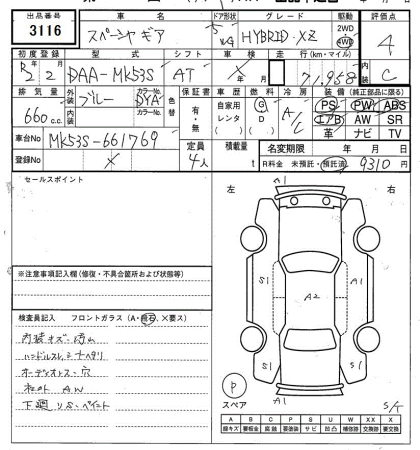 出品番号 車名 ドア形状 グレード 駆動 評価点
3116 スペーシャギア 5 WG HYBRID・XZ 2WD 4WD 4
初度登録 型式 シフト 車検 走行(km・マイル) 内装
R2 2月 DAA-MK53S AT × 年 月 71,958 C
排気量 外装 カラーNo. 色替 保証書 車歴 燃料 冷房 装備(純正部品に限る)
660 c.c. ブルー DYA 有・無 自家用 レンタ ( ) G D ( ) A/C PS PW ABS
内装 カラーNo. エアB AW SR
革 ナビ TV
車台No MK53S-661769 定員 4人 積載量 t 名変期限 年 月 日
登録No × R料金 未預託・預託済 9310 円
セールスポイント
左 右
A1
S1 A2 S1 A1
A1
※注意事項記入欄(修復・不具合箇所および状態等)
検査員記入 フロントガラス(A・飛石、×要ス)
内装キズ・汚れ
ハンドルスレ、シートヘタリ
オーディオレス・穴
社外AW
下廻りS・ペイント
P
スペア
S/T
A B C P S U W XX X
線キズ 要板金 腐蝕 要塗装 サビ 凹凸 補修跡 交換跡 要交換